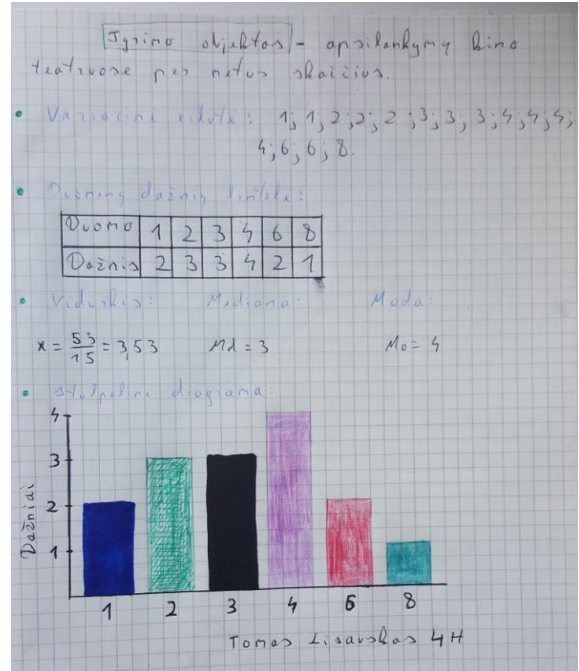 Tyrimo objektas - apsilankymų kino
teatruose per metus skaičius.
Variacinė eilutė: 1; 1; 2; 2; 2; 3; 3; 3; 4; 4; 4;
4; 6; 6; 8.
Duomenų dažnių lentelė:
Duomo 1 2 3 4 6 8
Dažnis 2 3 3 4 2 1
Vidurkis: Mediana: Moda:
x = 53/15 = 3,53 Md = 3 Mo = 4
Stulpelinė diagrama:
4
3
2
1
Dažniai
1 2 3 4 6 8
Tomas Lisauskas 4H